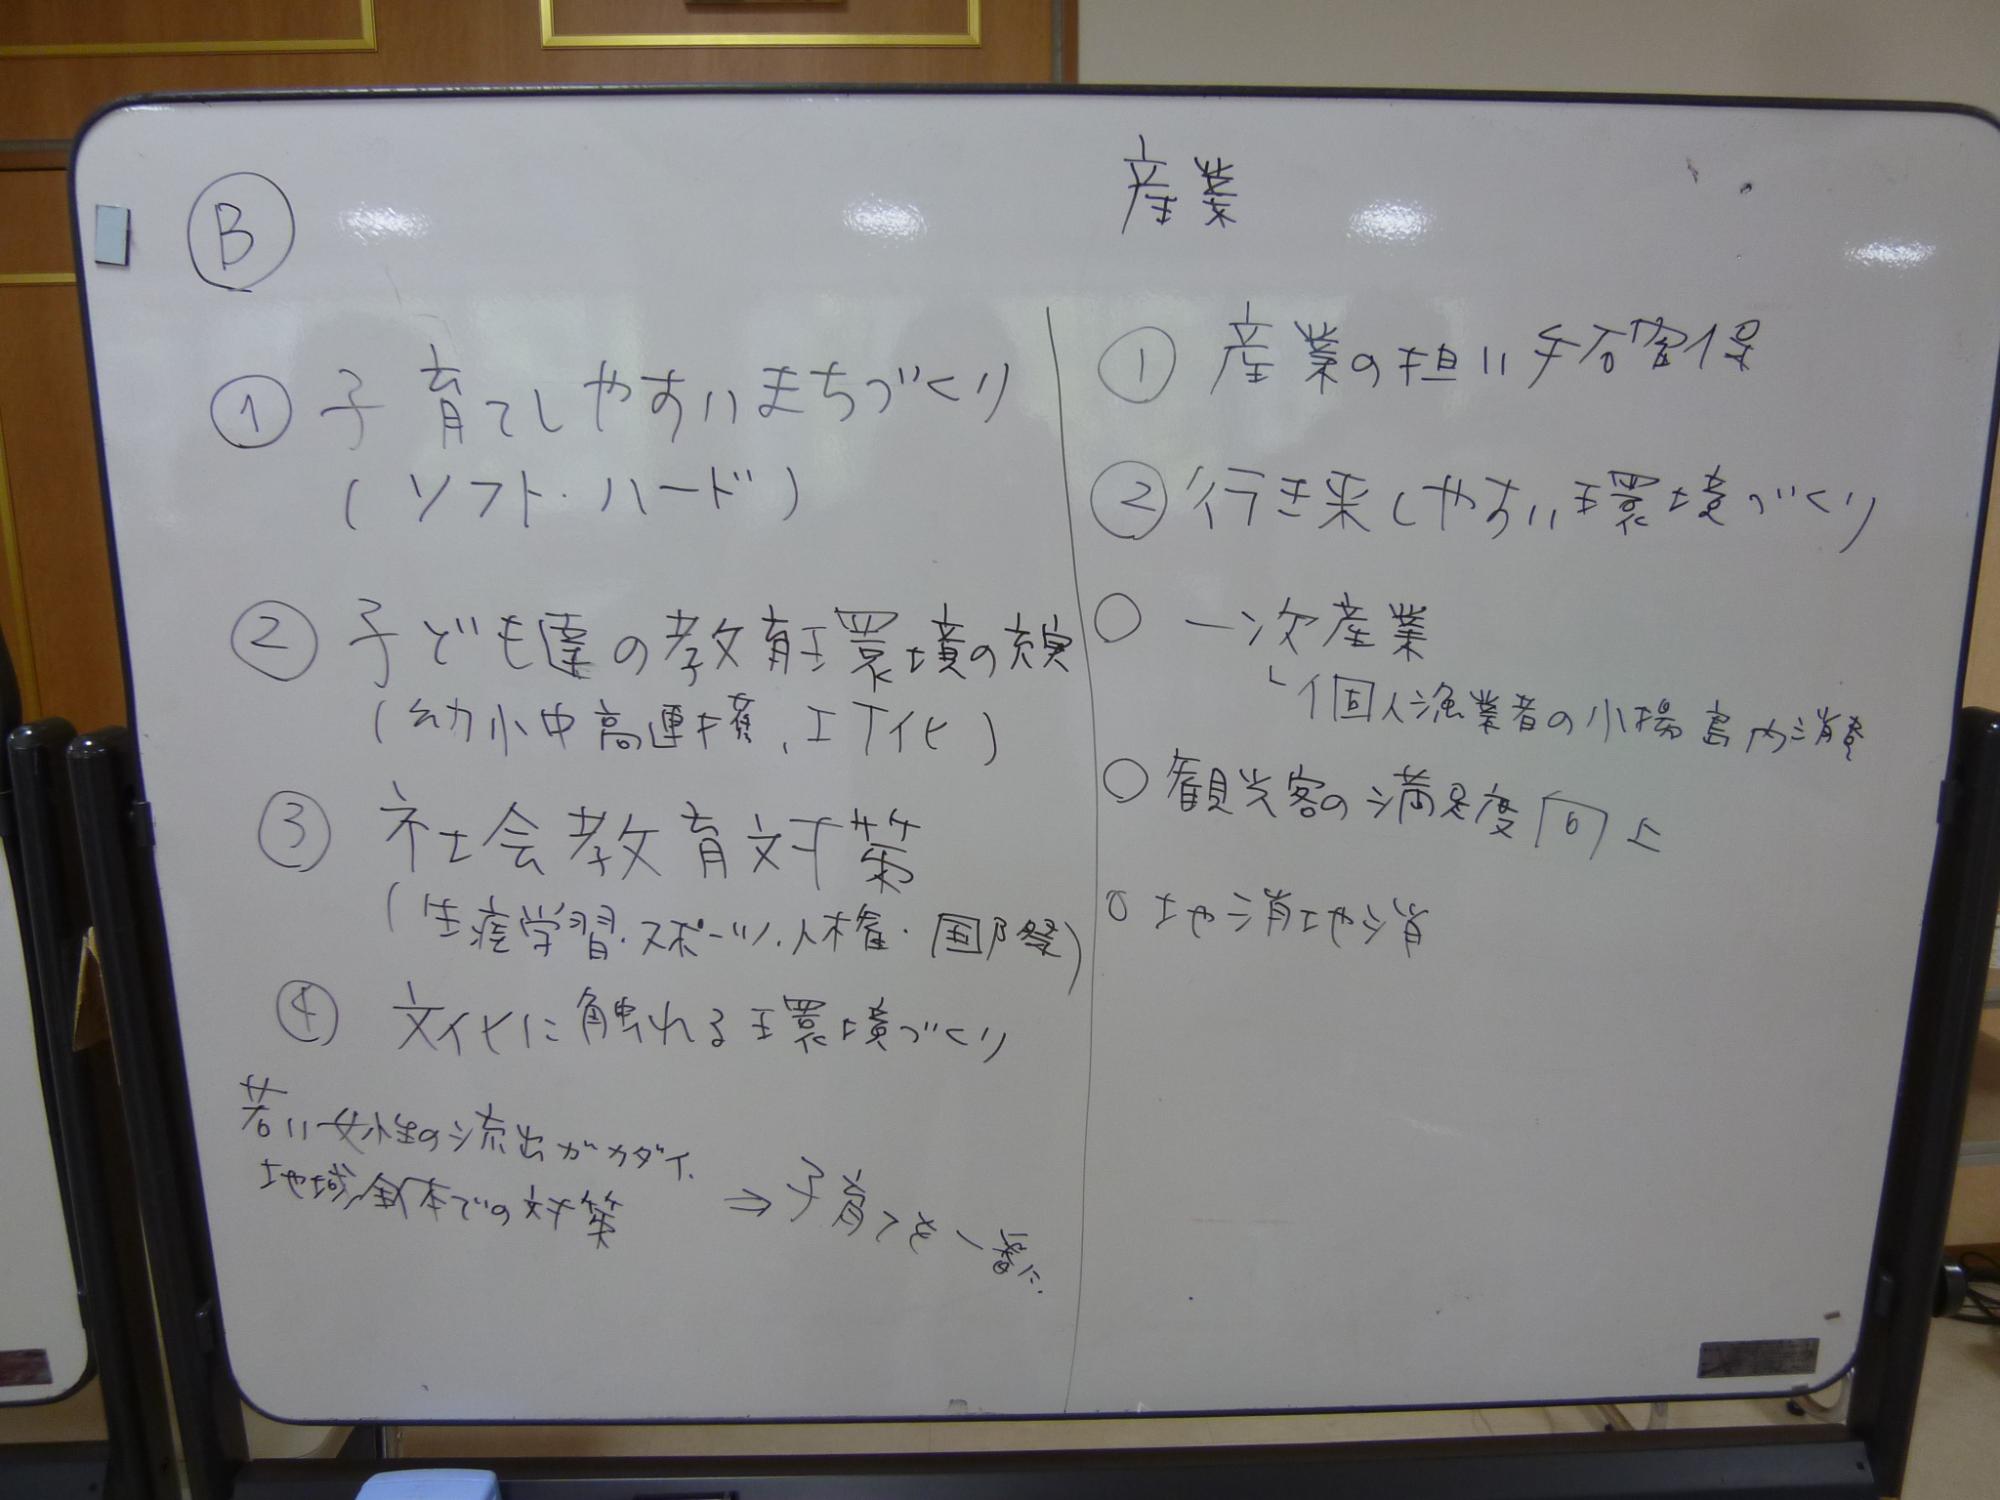 B
① 子育てしやすいまちづくり
(ソフト・ハード)
② 子ども達の教育環境の充実
(幼小中高連携、IT化)
③ 社会教育対策
(生涯学習・スポーツ・人権・国際)
④ 文化に触れる環境づくり
若い女性の流出がカダイ.
地域全体での対策
⇒ 子育てを一番に.
産業
① 産業の担い手石確保
② 行き来しやすい環境づくり
○ 一次産業
└ 個人漁業者の水揚島内消費
○ 観光客の満足度向上
○ 地消地消